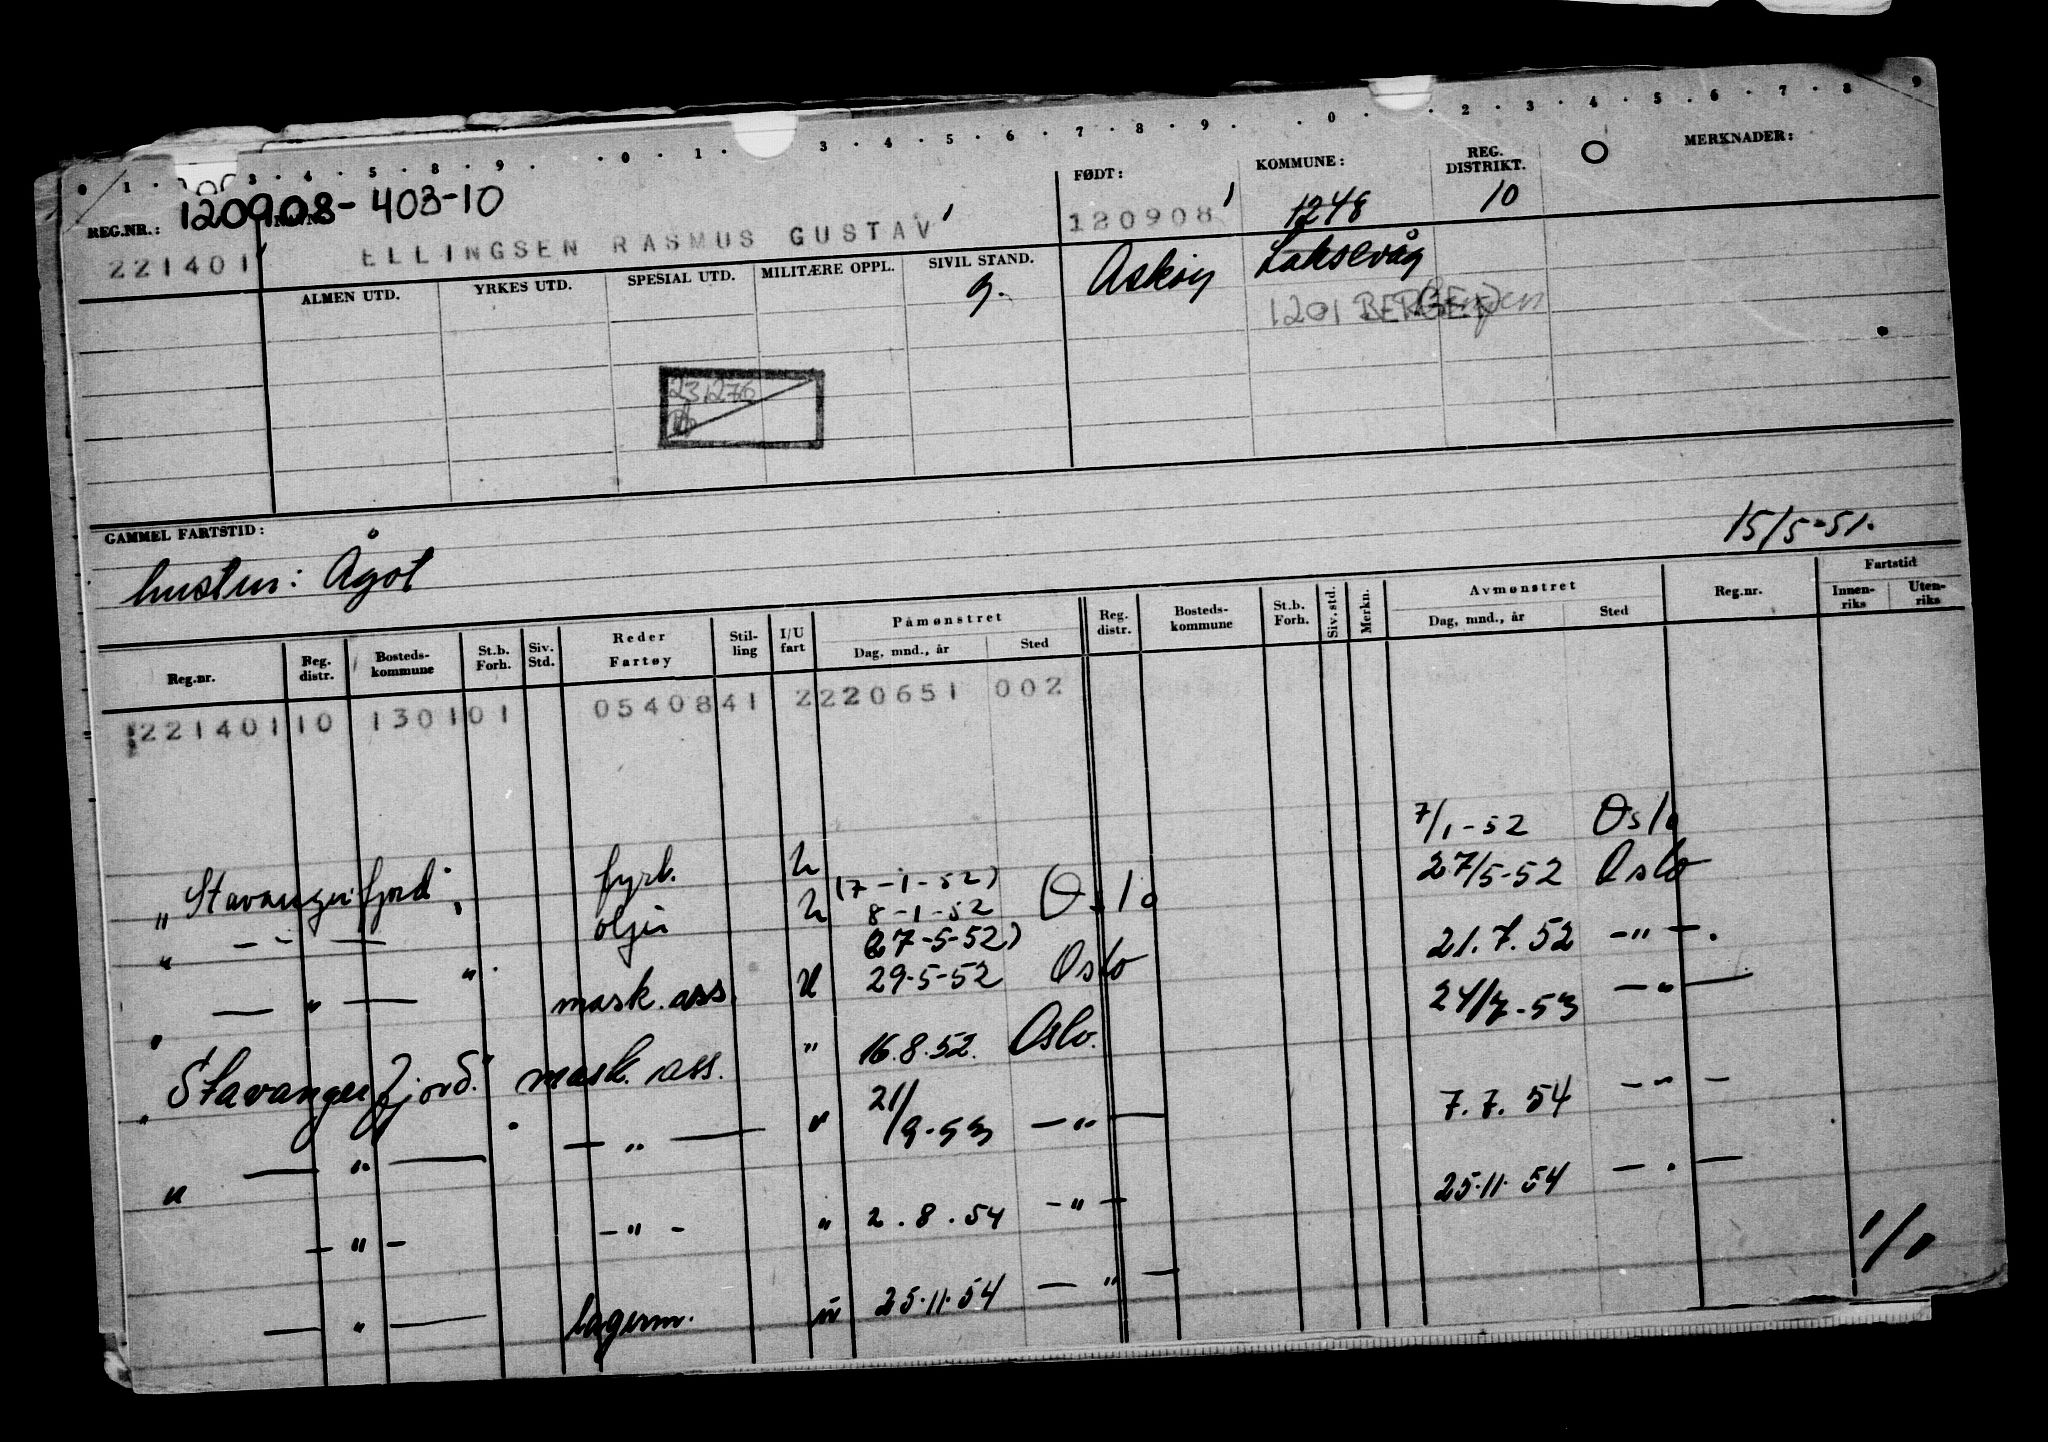 REG.NR.: 120908-403-10 FØDT: KOMMUNE: REG. DISTRIKT. MERKNADER:
221401 ELLINGSEN RASMUS GUSTAV 120908 1248 10
ALMEN UTD. YRKES UTD. SPESIAL UTD. MILITÆRE OPPL. SIVIL STAND. Askøy Laksevåg
g. 1201 BERGEN
231276
GAMMEL FARTSTID: 15/5-51.
hustru: Ågot
Reg.nr. Reg. distr. Bosteds- kommune St.b. Forh. Siv. Std. Reder Fartøy Stil- ling I/U fart Påmønstret Dag, mnd., år Sted Reg. distr. Bosteds- kommune St.b. Forh. Siv. std. Merkn. Avmønstret Dag, mnd., år Sted Reg.nr. Fartstid Innen- riks Uten- riks
221401 10 1301 01 0540841 2220651 002
7/1-52 Oslo
"Stavangerfjord" fyrb. U (7-1-52) 27/5-52 Oslo
" - " - oljer U 8-1-52 Oslo
(27-5-52) 21.7.52 -"-.
" — " — " mask. ass. U 29-5-52 Oslo
24/7-53 -"-
"Stavangerfjord." mask. ass. " 16.8.52. Oslo.
7.7.54 -"-
" — " — — " — " 21/9-53 -"-
25.11.54 -"-
- " - - " - " 2.8.54 -"-
1/1
— " — lagerm. u 25.11.54 — " —